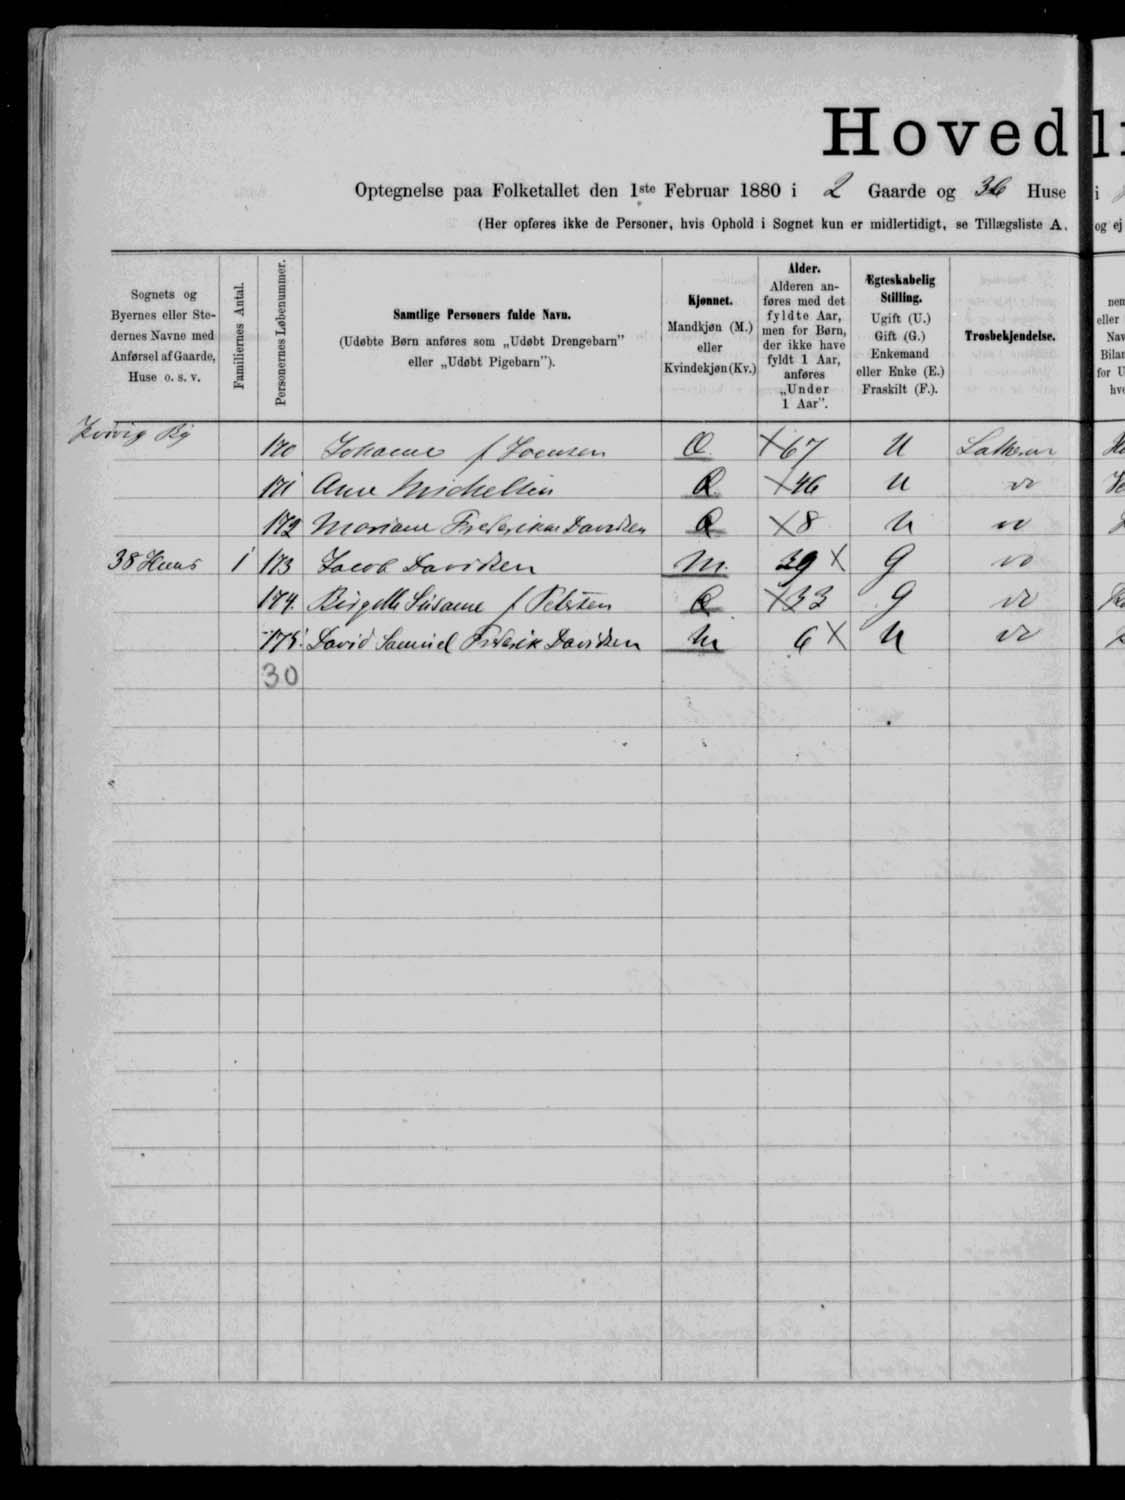 Hovedli
Optegnelse paa Folketallet den 1ste Februar 1880 i 2 Gaarde og 36 Huse i
(Her opføres ikke de Personer, hvis Ophold i Sognet kun er midlertidigt, se Tillægsliste A. og ej
Sognets og Byernes eller Stedernes Navne med Anførsel af Gaarde, Huse o. s. v.
Familiernes Antal.
Personernes Løbenummer.
Samtlige Personers fulde Navn.
(Udøbte Børn anføres som „Udøbt Drengebarn"
eller „Udøbt Pigebarn").
Kjønnet.
Mandkjøn (M.)
eller
Kvindekjøn (Kv.)
Alder.
Alderen an-
føres med det
fyldte Aar,
men for Børn,
der ikke have
fyldt 1 Aar,
anføres
„Under
1 Aar".
Ægteskabelig
Stilling.
Ugift (U.)
Gift (G.)
Enkemand
eller Enke (E.)
Fraskilt (F.).
Trosbekjendelse.
Kvivig By
170 Johanne f Joensen Q. X 67 U Luthersn
171 Anne Michelsen Q X 46 U do
172 Mariane Frederikke Davidsen Q X 8 U do
38 Huus 1 173 Jacob Davidsen M. 39 X G do
174. Birgitte Susanne f Petersen Q X 33 G do
175. David Samuel Frederik Davidsen M 6 X U do
30